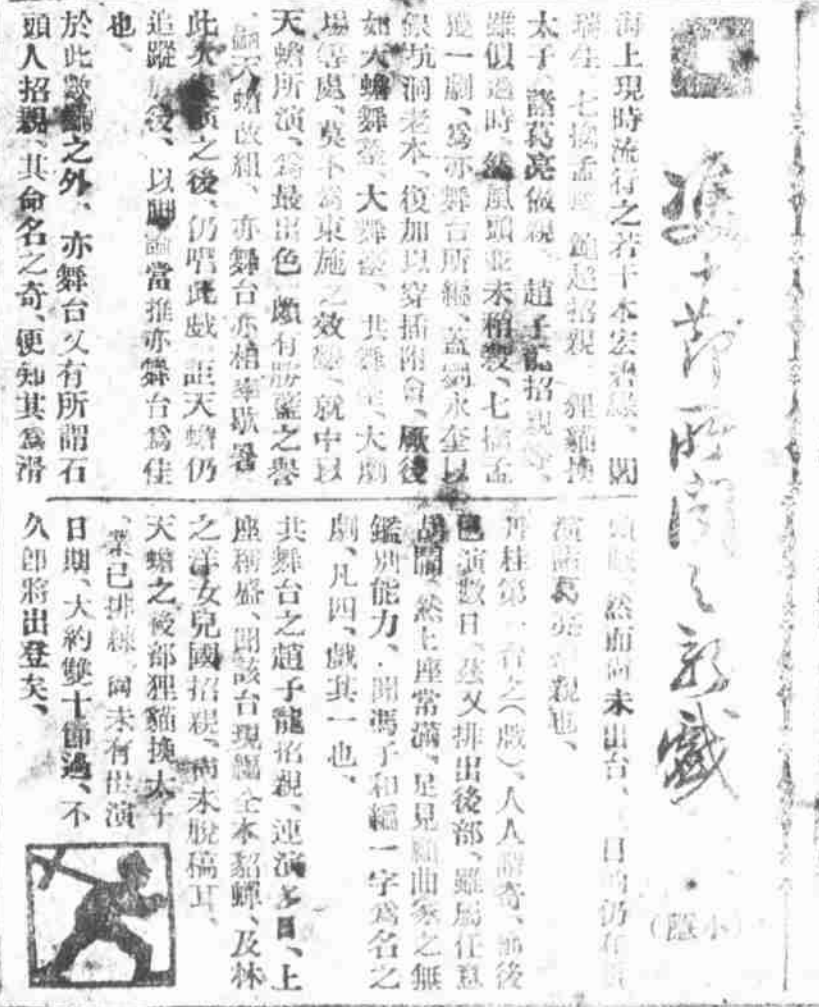 雙十節所聞之新戲
(小隱)
海上現時流行之若干本宏者、閻
瑞生、七擒孟、超招親、狸貓換
太子、諸葛亮做親、趙子龍招親等、
雖似過時、然風頭並未稍殺、七擒孟
獲一劇、為亦舞台所編、蓋劉永奎以
銀坑洞老本、復加以穿插附會、厥後
如天蟾舞臺、大舞臺、共舞臺、大劇
場等處、莫不為東施之效顰、就中以
天蟾所演、為最出色、頗有勝藍之譽
、嗣天蟾改組、亦舞台亦相率歇暑、
此次演之後、仍唱此戲、詎天蟾仍
追蹤於後、以論當推亦舞台為佳
也、
於此數之外、亦舞台又有所謂石
頭人招親、其命名之奇、便知其為滑
戲、然而尚未出台、日內仍在
演諸葛亮親也、
丹桂第一台之(戲)、人人稱奇、前後
已演數日、茲又排出後部、雖屬任意
胡鬧、然上座常滿、足見顧曲家之無
鑑別能力、聞馮子和編一字為名之
劇、凡四、戲其一也、
共舞台之趙子龍招親、連演多日、上
座稱盛、聞該台現編全本貂蟬、及林
之洋女兒國招親、尚未脫稿耳、
天蟾之後部狸貓換太子
、業已排練、尚未有出演
日期、大約雙十節過、不
久即將出登矣、